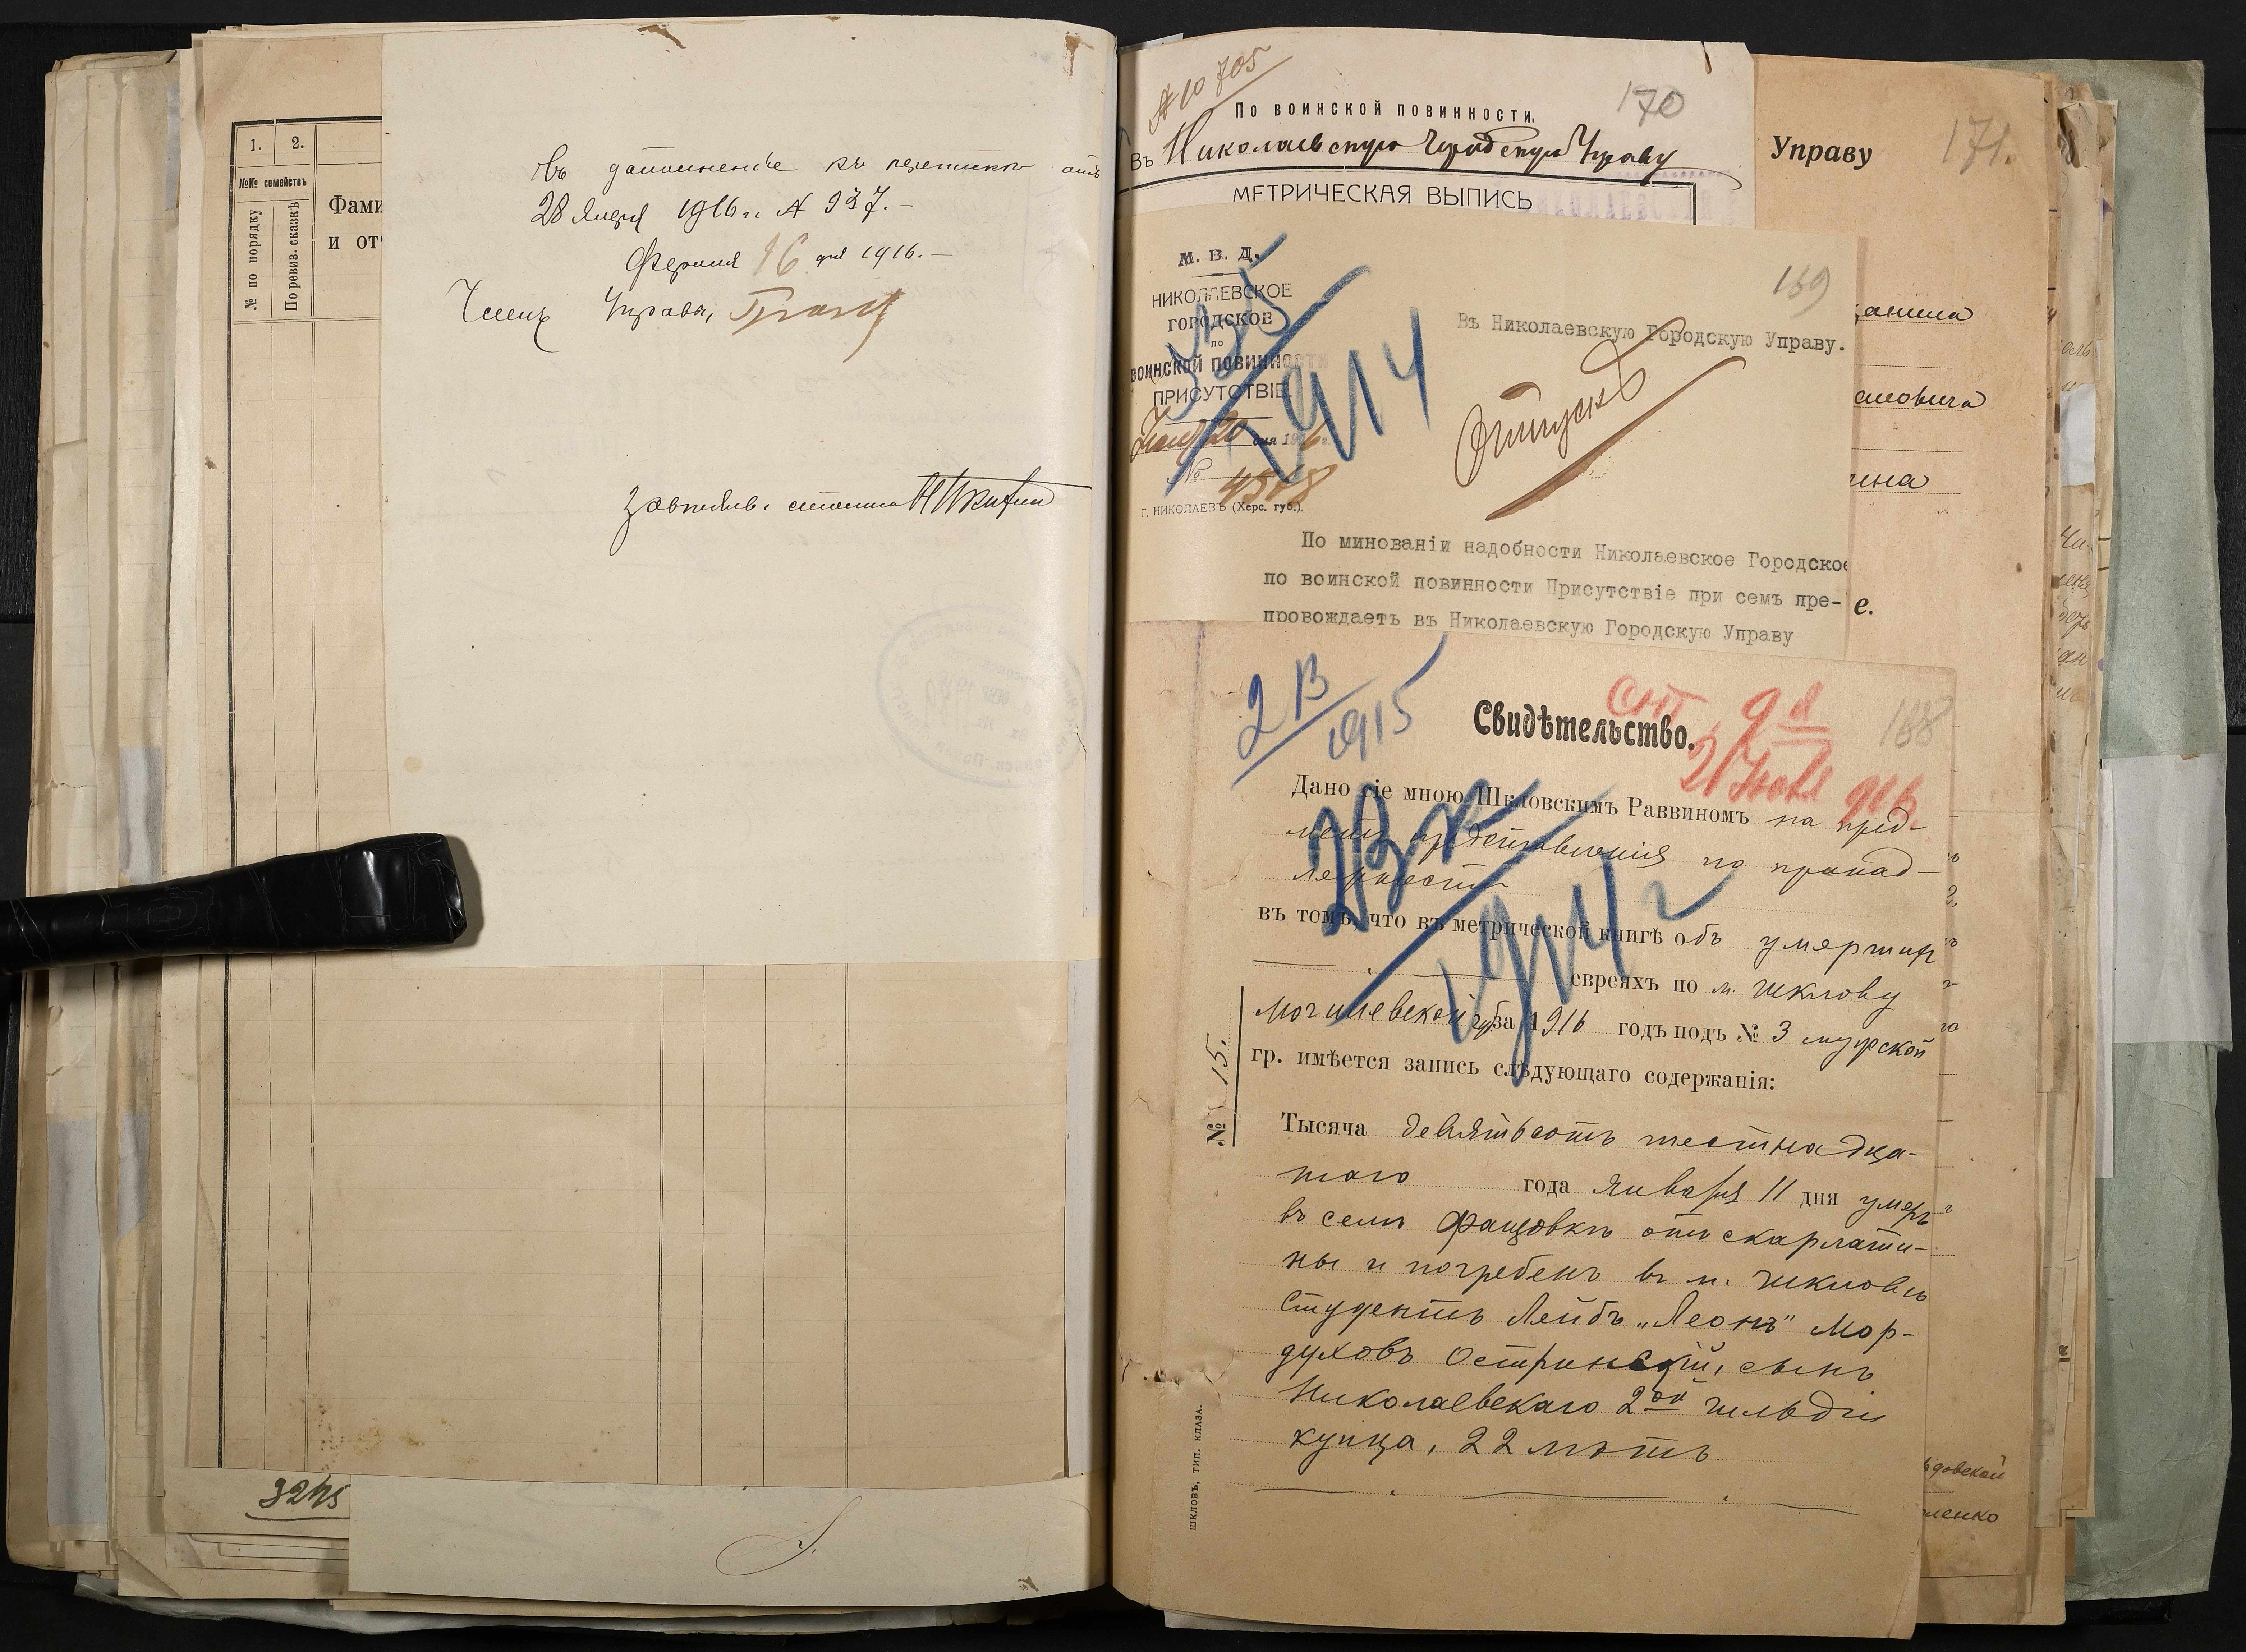 1.
2.
№№ семействъ
№ по порядку
По ревиз. сказкѣ
Фами
и от
Въ дополненіе къ отъ
28 Января 1916 г. № 937.—
Февраля 16 дня 1916.—
Членъ Управы,
3245
№ 10705
По воинской повинности.
170
Въ Николаевскую Городскую Управу
МЕТРИЧЕСКАЯ ВЫПИСЬ
Управу
171.
М. В. Д.
НИКОЛАЕВСКОЕ
ГОРОДСКОЕ
по
ВОИНСКОЙ ПОВИННОСТИ
ПРИСУТСТВІЕ
20 дня 1916
№ 4518
Г. НИКОЛАЕВЪ (Херс. губ.).
1914
169
Въ Николаевскую Городскую Управу.
По минованіи надобности Николаевское Городское
по воинской повинности Присутствіе при семъ пре-
провождаетъ въ Николаевскую Городскую Управу
е.
2 В
1915
Свидѣтельство.
168
Дано сіе мною Шкловскимъ Раввиномъ на пред-
метъ представленія по принад-
лежности
въ томъ, что въ метрической книгѣ объ умершихъ
евреяхъ по м. Шклову
Могилевской губ за 1916 годъ подъ № 3 мужской
гр. имѣется запись слѣдующаго содержанія:
1914 г
№ 15.
Тысяча девятьсотъ шестнадца-
таго года Января 11 дня умеръ
въ селѣ Фащовкѣ отъ скарлати-
ны и погребенъ въ м. Шкловѣ
Студентъ Лейбъ „Леонъ" Мор-
духовъ Остринскій, сынъ
Николаевскаго 2ой гильдіи
купца, 22 лѣтъ.
ШКЛОВЪ, ТИП. КЛАЗА.